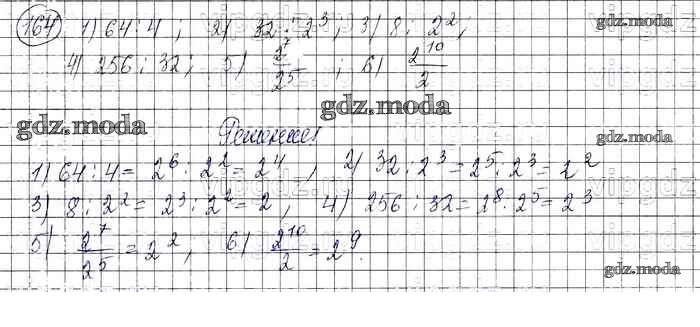 164 1) 64:4, 2) 32:2³, 3) 8:2²,
gdz.moda
4) 256:32; 5) 2⁷/2⁵; 6) 2¹⁰/2
gdz.moda
gdz.moda Решение gdz.moda
1) 64:4=2⁶:2²=2⁴, 2) 32:2³=2⁵:2³=2²
3) 8:2²=2³:2²=2, 4) 256:32=2⁸:2⁵=2³
5) 2⁷/2⁵=2², 6) 2¹⁰/2=2⁹.
gdz.moda